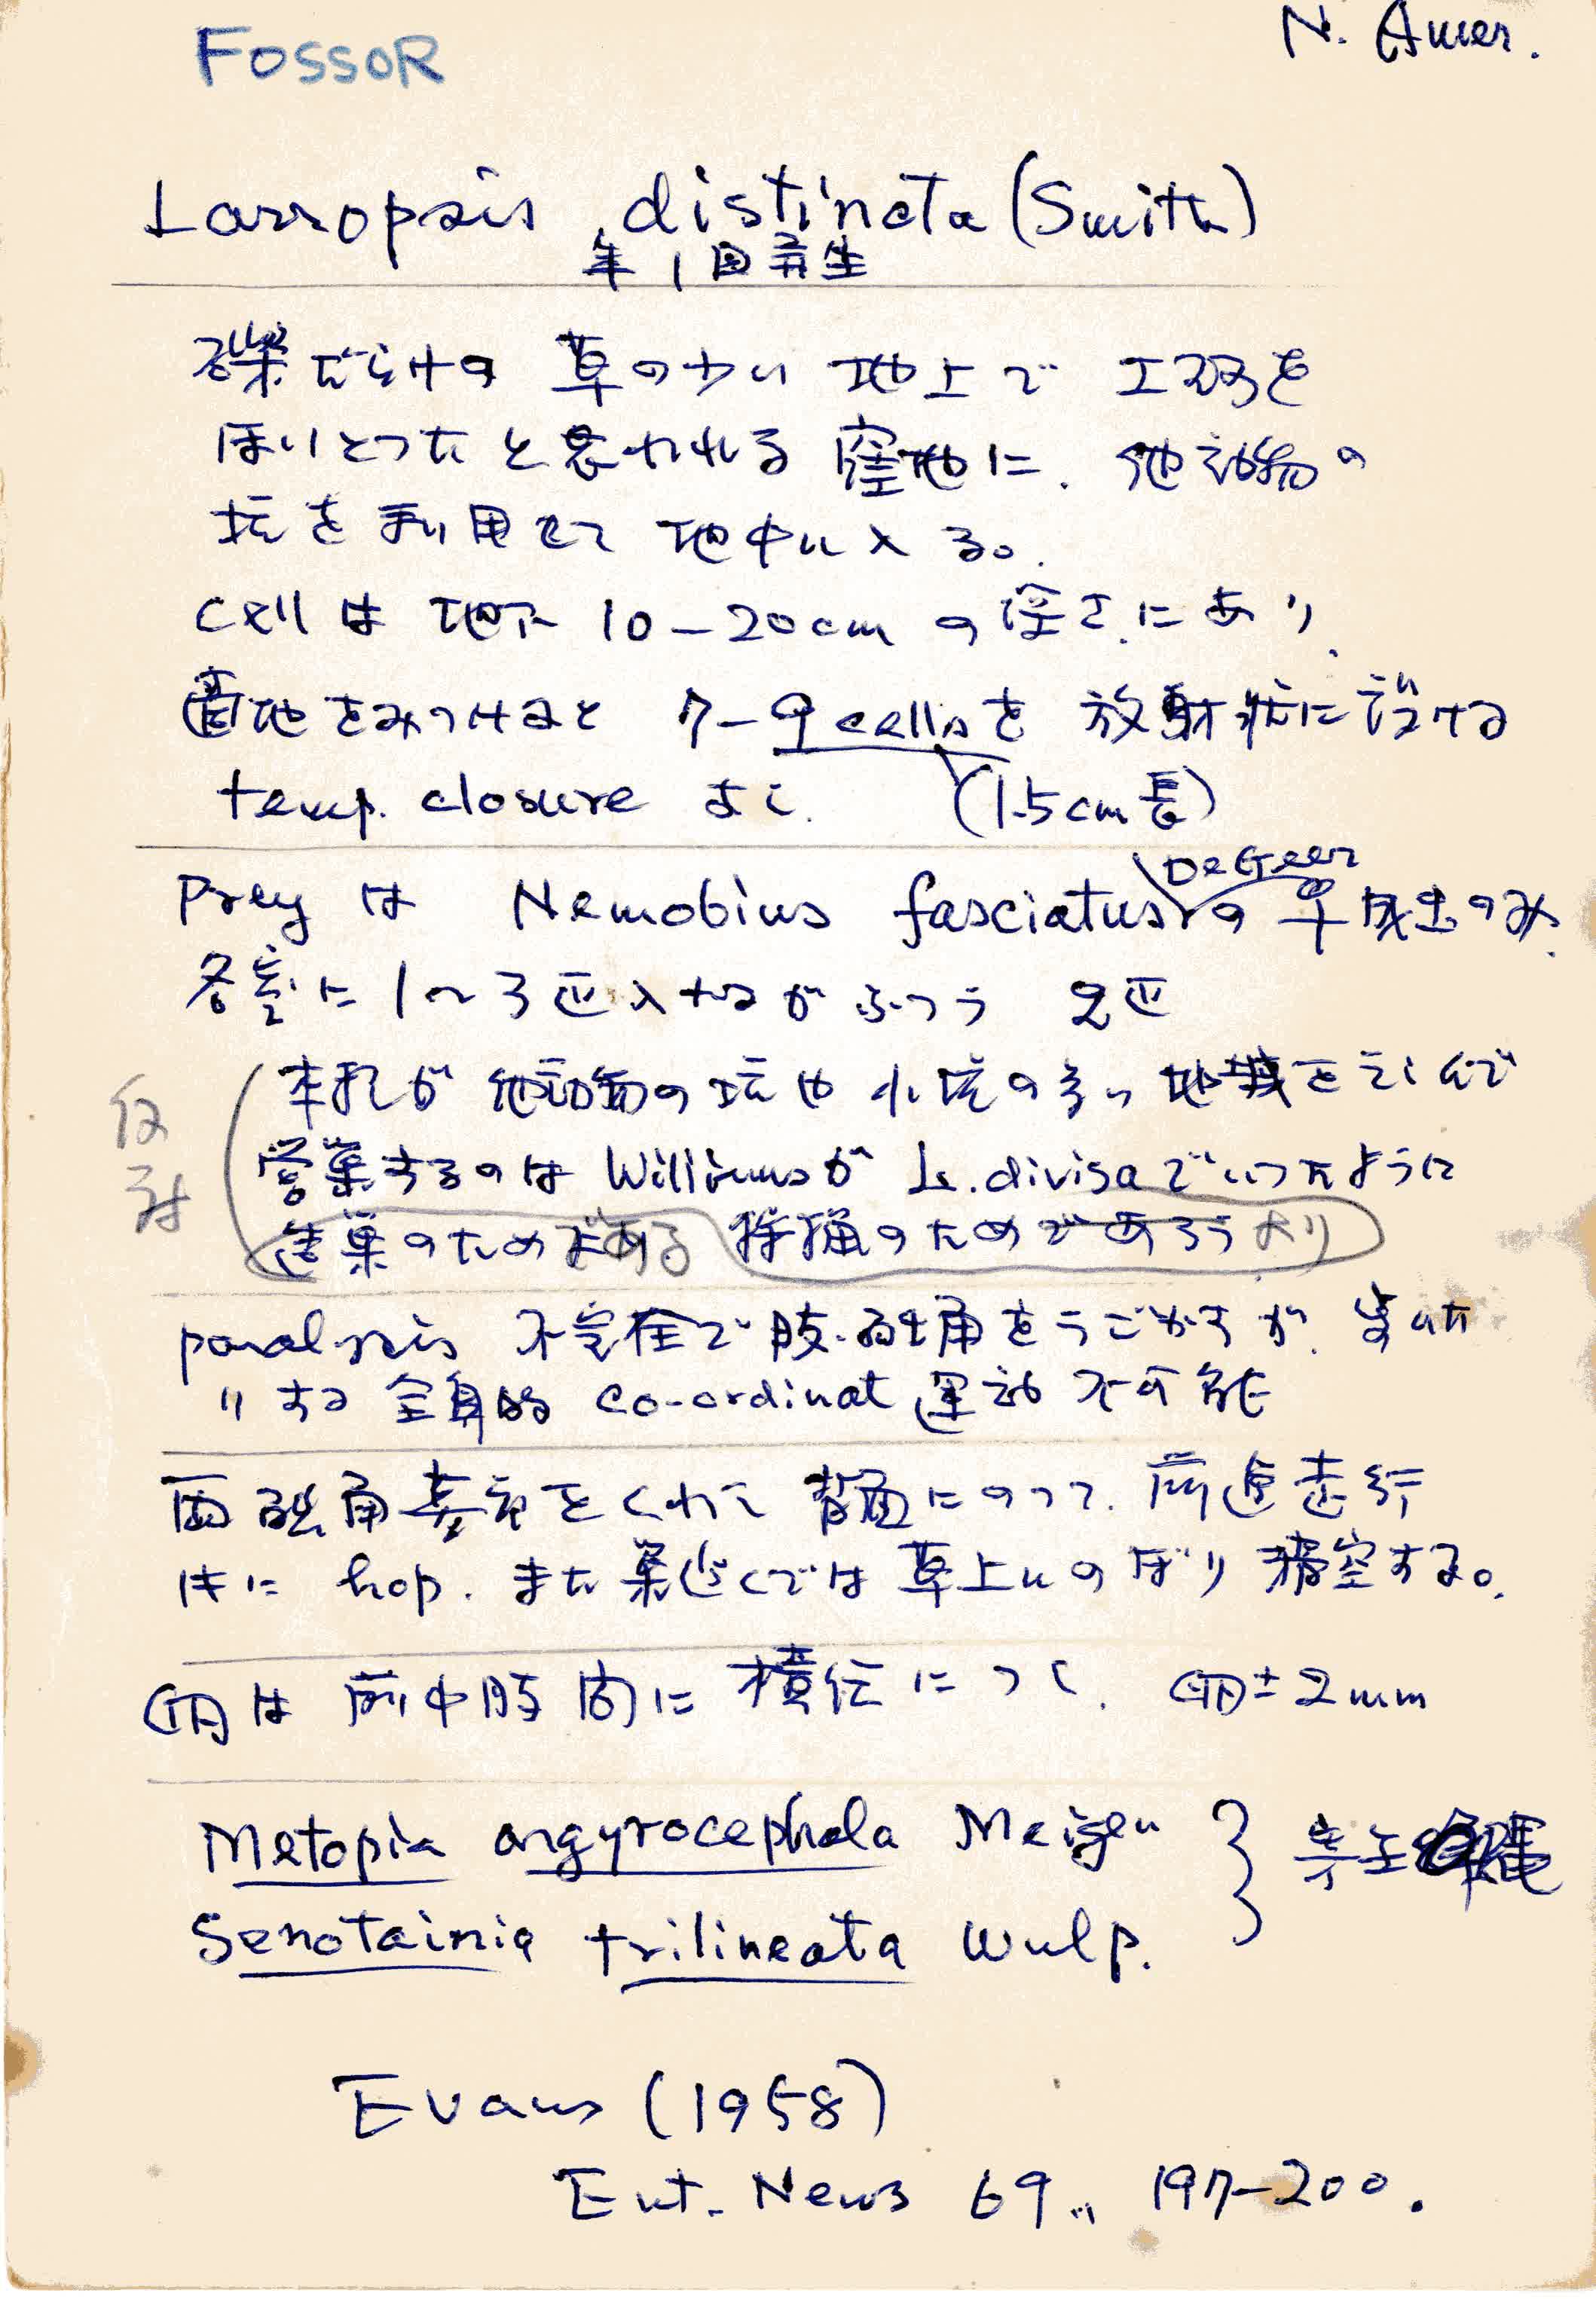 FOSSOR
N. Amer.
Larropsis distincta (Smith)
年1回発生
礫だらけの 草の少い 地上で 土砂を
ほりとったと思われる 窪地に、他動物の
坑を利用して 地中に入る。
cellは 地下 10-20cm の深さにあり、
適地をみつけると 7-9 cellsを 放射状に設ける
temp. closure なし (1.5cm長)
Preyは Nemobius fasciatus DeGeer の ♀成虫のみ
各室に 1~3匹入れるが ふつう 2匹
仮説
本種が 他動物の坑や 小坑の多い 地域をえらんで
営巣するのは Williamsが L. divisaでいったように
狩猟のためであろうより
造巣のためである
paralysis 不完全で 肢・触角をうごかすが、
りする 全身的 co-ordinat 運動 不可能
両触角基部をくわえて 背面にのって、前進走行
ときに hop. また巣近くでは 草上にのぼり 滑空する。
卵は 前中肢間に 横位につく、卵±2mm
Metopia argyrocephala Meigen
Senotainia trilineata Wulp.
} 寄生蠅
Evans (1958)
Ent. News 69., 197-200.